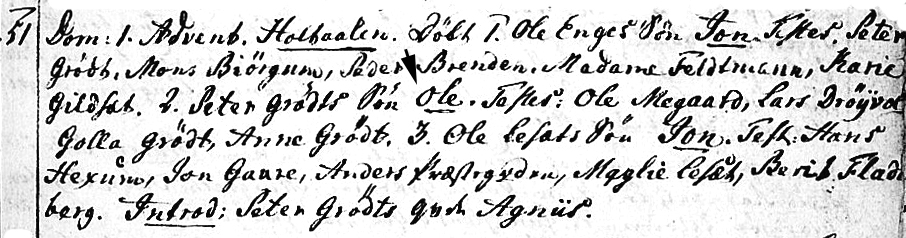 51 Dom: 1. Advent. Holtaalen. Döbt 1. Ole Enges Sön Jon. Testes. Peter
Grödt, Mons Biörgum, Peder Brenden. Madame Feldtmann, Karie
Gildset. 2. Peter Grödts Sön Ole. Testes: Ole Megaard, Lars Dröyvol
Golla Grödt, Anne Grödt. 3. Ole Lesets Sön Jon. Test: Hans
Hexum, Jon Gaare, Anders Præstegrden, Maglie Leset, Berit Flad
berg. Introd: Peter Grödts Agniis.